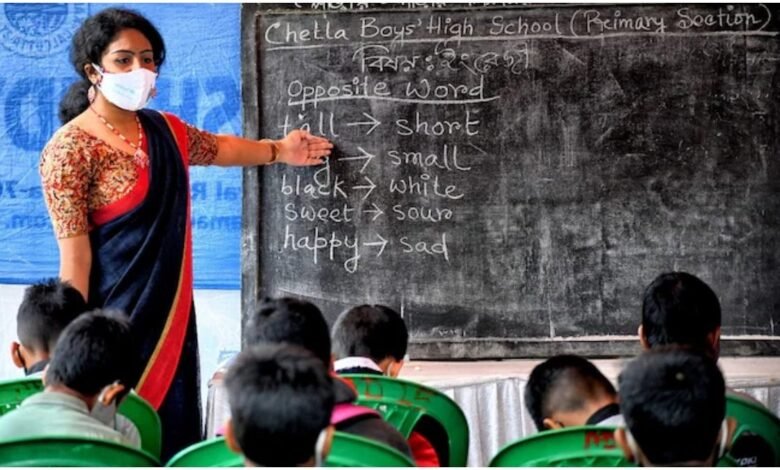 Chetla Boys' High School (Primary Section)
বিষয়: ইংরেজী
Opposite Word
tall → short
→ small
black → white
sweet → sour
happy → sad